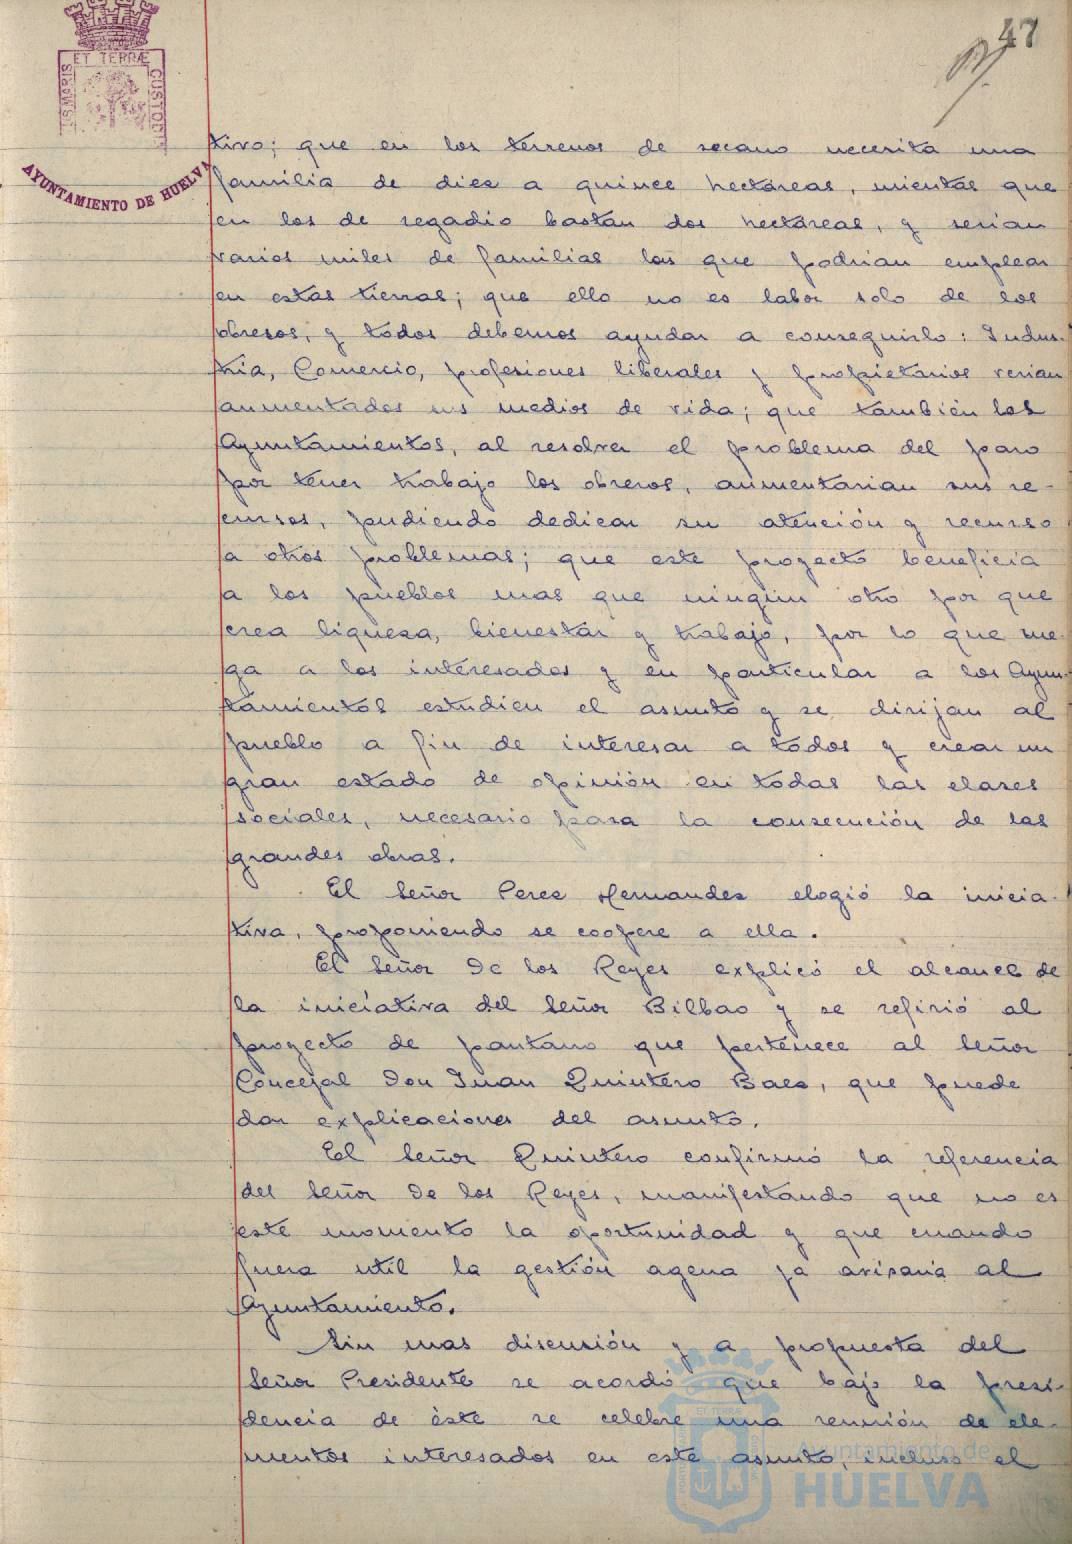 47
ET TERRÆ
CUSTODI
AYUNTAMIENTO DE HUELVA
tivo; que en los terrenos de secano necesita una
familia de diez a quince hectáreas, mientas que
en los de regadio bastan dos hectáreas, y serian
varios miles de familias las que podrian emplear
en estas tierras; que ello no es labor solo de los
obreros, y todos debemos ayudar a conseguirlo: Indus-
tria, Comercio, profesiones liberales y propietarios verian
aumentados sus medios de vida; que también los
Ayuntamientos, al resolver el problema del paro
por tener trabajo los obreros, aumentarian sus re-
cursos, pudiendo dedicar su atención y recurso
a otros problemas; que este proyecto beneficia
a los pueblos mas que ningún otro por que
crea riqueza, bienestar y trabajo, por lo que rue-
ga a los interesados y en particular a los Ayun-
tamientos estudien el asunto y se dirijan al
pueblo a fin de interesar a todos y crear un
gran estado de opinión en todas las clases
sociales, necesario para la consecución de las
grandes obras.
El Señor Perez Hernandez elogió la inicia-
tiva, proponiendo se coopere a ella.
El Señor De los Reyes explicó el alcance de
la iniciativa del Señor Bilbao y se refirió al
proyecto de pantano que pertenece al Señor
Concejal Don Juan Quintero Baez, que puede
dar explicaciones del asunto.
El Señor Quintero confirmó la referencia
del Señor De los Reyes, manifestando que no es
este momento la oportunidad y que cuando
fuera util la gestión agena ya avisaria al
Ayuntamiento.
Sin mas discusión y a propuesta del
Señor Presidente se acordó que bajo la presi-
dencia de éste se celebre una reunión de ele-
mentos interesados en este asunto, incluso el
Ayuntamiento de
HUELVA